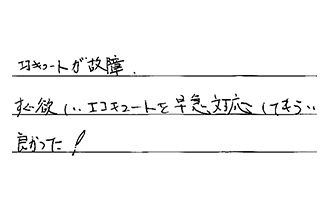 エコキュートが故障.
すぐ欲しい.エコキュートを早急対応してもらい
良かった!